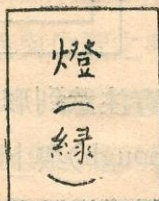 燈(緑)